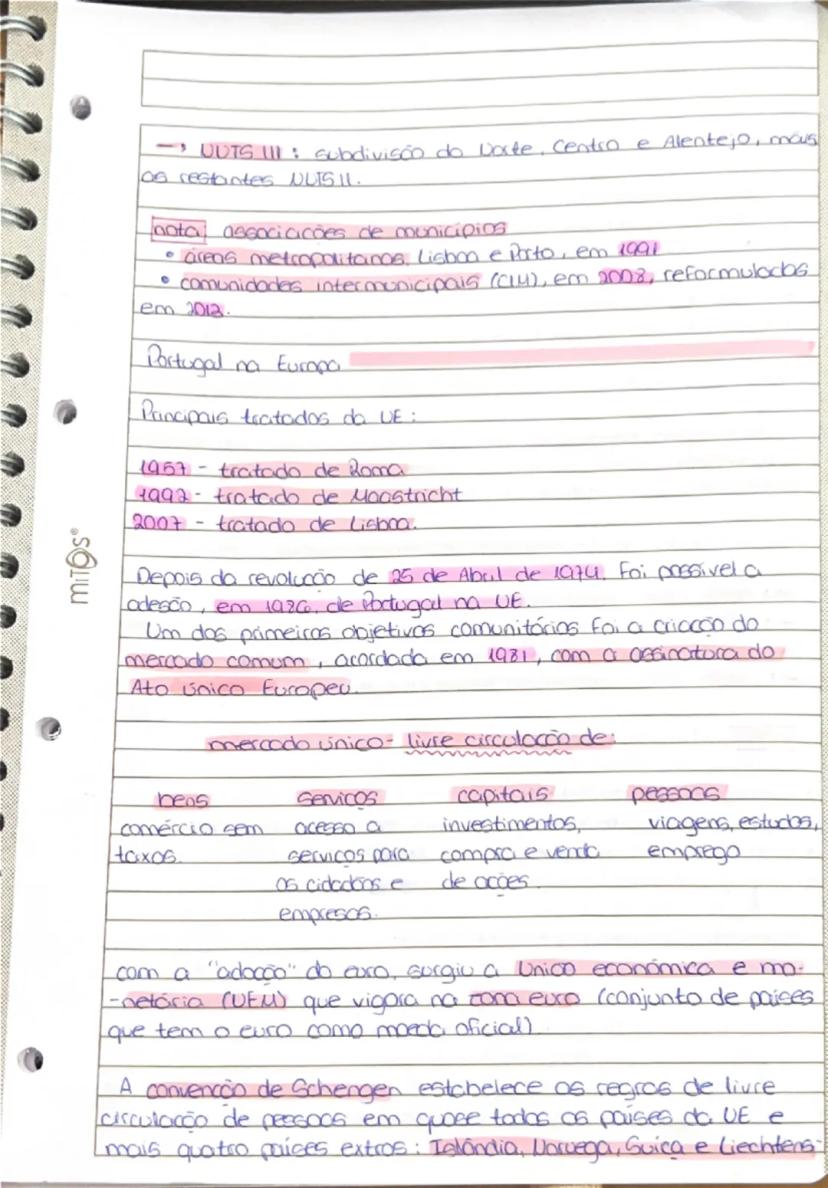 → NUTS III : subdivisão do Norte, Centro e Alentejo, mais
as restantes NUTS II.
nota associações de municípios
• áreas metropolitanas Lisboa e Porto, em 1991
• comunidades intermunicipais (CIM), em 2008, reformuladas
em 2012.
Portugal na Europa
Principais tratados da UE :
1957 - tratado de Roma
1992 - tratado de Maastricht
2007 - tratado de Lisboa.
Depois da revolução de 25 de Abril de 1974. Foi possível a
adesão, em 1986, de Portugal na UE.
Um dos primeiros objetivos comunitários foi a criação do
mercado comum, acordada em 1981, com a assinatura do
Ato único Europeu.
mercado único - livre circulação de:
bens serviços capitais pessoas
comércio sem acesso a investimentos, viagens, estudos,
taxas. serviços para compra e venda emprego
os cidadãos e de ações.
empresas.
com a "adoção" do euro, surgiu a União económica e mo-
-netária (UEM) que vigora na zona euro (conjunto de países
que tem o euro como moeda oficial)
A convenção de Schengen estabelece as regras de livre
circulação de pessoas em quase todos os países da UE e
mais quatro países extras : Islândia, Noruega, Suiça e Liechtens-
MiTOS®